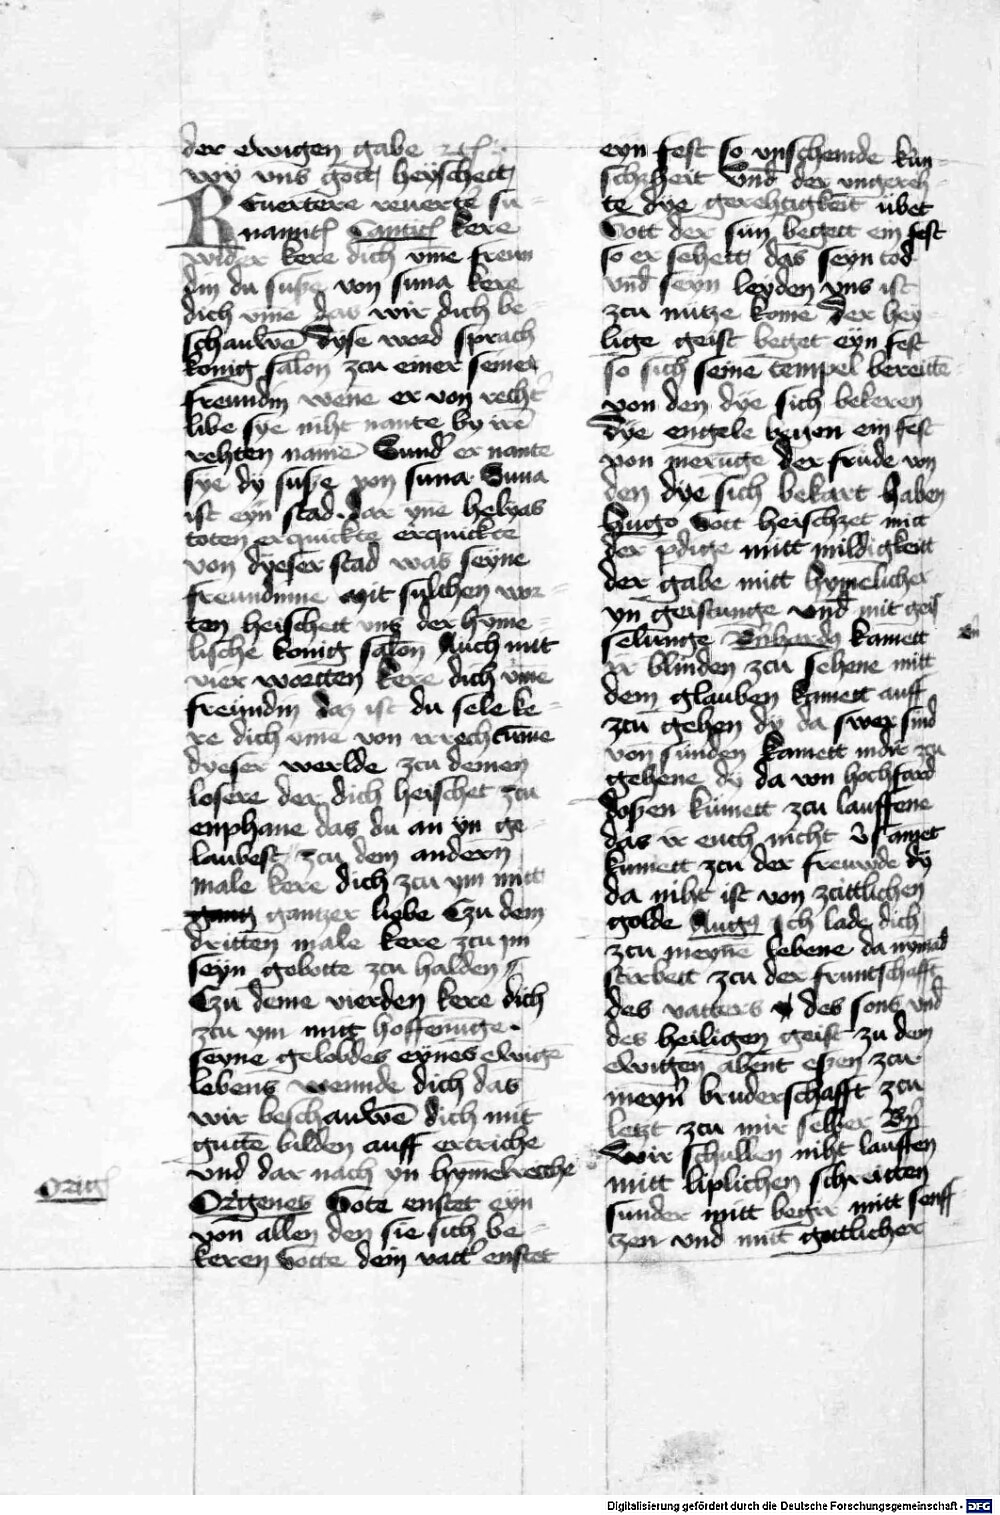 der ewigen gabe ꝛcꝭ
wy vns gott heyschett
Reuertere reuerte su-
namitꝭ Canticꝭ kere
wider kere dich vme freun
din du suße von suna kere
dich vme das wir dich be-
schauwē dyse word sprach
konig salon zcu einer seiner
freundin wene er von recht
libe sye niht nante by irē
rehten namē Sund' er nante
sye dy suße von suna Suna
ist eyn stad dar yne helyas
toten erquickte erquickte
von dyeser stad was seyne
freundinne mit sulchen wor-
ten heischett vns der hyme-
lische konig salon Auch mit
vier wortten kere dich vme
freundin daz ist du sele ke-
re dich vme von
dyeser werlde zcu deinen
losere der dich heischet zcu
enphane das du an yn ge-
laubest zcu dem andern
male kere dich zcu ym mitt
gantzer liebe Czu dem
dritten male kere zcu ym
seyn gebotte zcu halden
Czu deme vierden kere dich
zcu ym mitt hoffenūge
seyne gelobdes eynes ewigē
lebens wennde dich das
wir beschauwē dich mit
guttē bilden auff ertriche
vnd dar nach yn hymelreiche
Origꝭ
Origenes Gote enstet eyn
von allen den sie sich be-
keren Gotte dem vatt' enstet
eyn fest so vnschemde kun-
scheheit vnd der vngereh-
te dye gerehtigkeit übet
Gott der sun begett ein fest
so er sehett das seyn tod
vnd seyn leyden vns ist
zcu nutze kome Der hey-
lige geist beget eyn fest
so sich seine tempel bereittē-
von den dye sich bekeren
Dye engele ein fest
von merūge der frude von
den dye sich bekart haben
Hugo Gott heischzet mitt
der pdige mitt mildigkeitt
der gabe mitt hymelicher
yn geistunge vnd mit geis
selunge Bnhardꝰ kamett
ir blinden zcu sehene mitt
dem glauben kamett auff
zcu gehen dy da swer sind
von sunden kamett zcu
gehene dy da von hochfard
doßen kumett zcu lauffene
das ir euch nicht
kumett zcu der freuwde dy
da niht ist von zcittlichen
golde Augꝰ Ich lade dich
zcu meynē lebene da nymād
stirbett zcu der fruntschafft
des vatters des sons vnd
des heiligen geist zu dem
ewigen abent eßen zcu
meyn' bruderschafft zcu
letzt zcu mir selber
Wir schullen niht lauffen
mitt liplichen schreitten
sunder mitt begir mitt senff
czen vnd mitt gottlicher
Digitalisierung gefördert durch die Deutsche Forschungsgemeinschaft - DFG